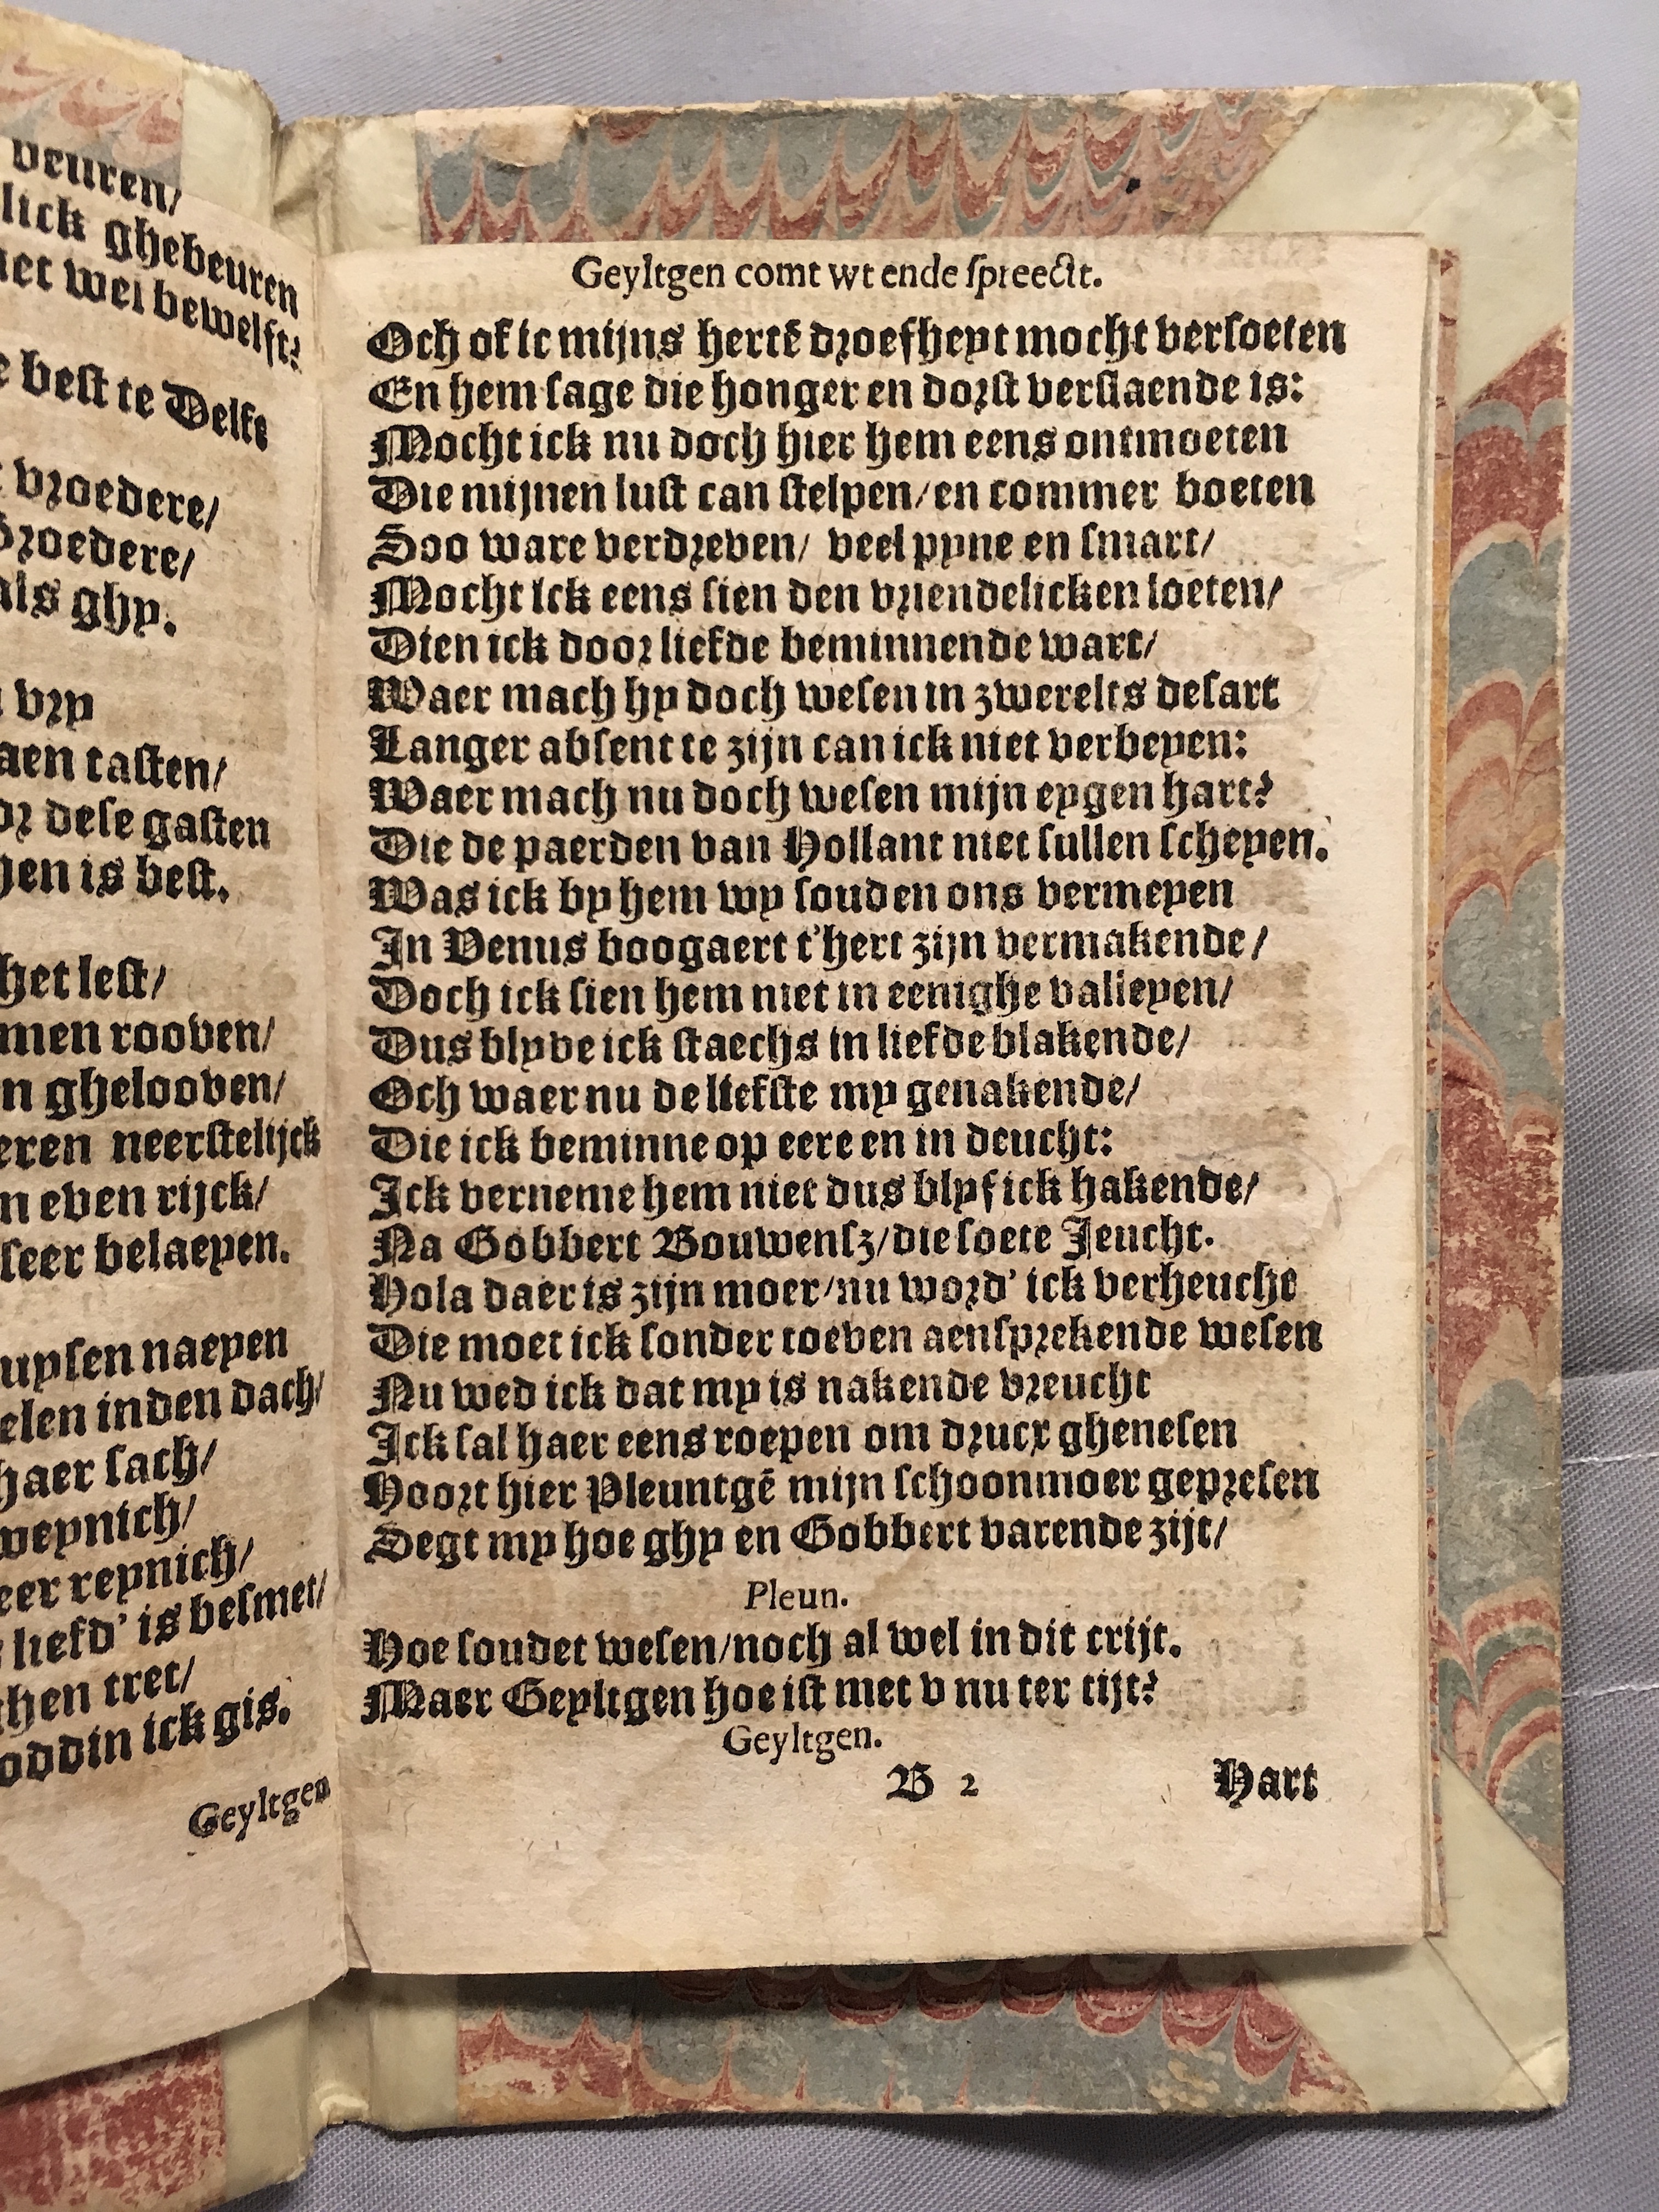 veuren/
lick ghebeuren
wel bewelft?
best te Delft
vroedere/
Broedere/
als ghy.
vry
aen tasten/
dese gasten
is best.
het lest/
rooven/
ghelooven/
neerstelijck
even rijck/
seer belaeyen.
naeyen
inden dach/
haer sach/
weynich/
reynich/
liefd' is besmet/
tret/
ick gis.
Geyltgen
Geyltgen comt wt ende spreeckt.
Och of ic mijns hertē droefheyt mocht versoeten
En hem sage die honger en dorst verslaende is:
Mocht ick nu doch hier hem eens ontmoeten
Die mijnen lust can stelpen/en commer boeten
Soo ware verdreven/ veel pyne en smart/
Mocht ick eens sien den vriendelicken loeten/
Dien ick door liefde beminnende wart/
Waer mach hy doch wesen in zwerelts desart
Langer absent te zijn can ick niet verbeyen:
Waer mach nu doch wesen mijn eygen hart?
Die de paerden van Hollant niet sullen scheyen.
Was ick by hem wy souden ons vermeyen
In Venus boogaert t'hert zijn vermakende/
Doch ick sien hem niet in eenighe valieyen/
Dus blyve ick staechs in liefde blakende/
Och waer nu de liefste my genakende/
Die ick beminne op eere en in deucht:
Ick verneme hem niet dus blyf ick hakende/
Na Gobbert Bouwensz/die soete Jeucht.
Hola daer is zijn moer/nu word' ick verheucht
Die moet ick sonder toeven aensprekende wesen
Nu wed ick dat my is nakende vreucht
Ick sal haer eens roepen om drucx ghenesen
Hoort hier Pleuntgē mijn schoonmoer gepresen
Segt my hoe ghy en Gobbert varende zijt/
Pleun.
Hoe soudet wesen/noch al wel in dit crijt.
Maer Geyltgen hoe ist met v nu ter tijt?
Geyltgen.
B 2 Hart